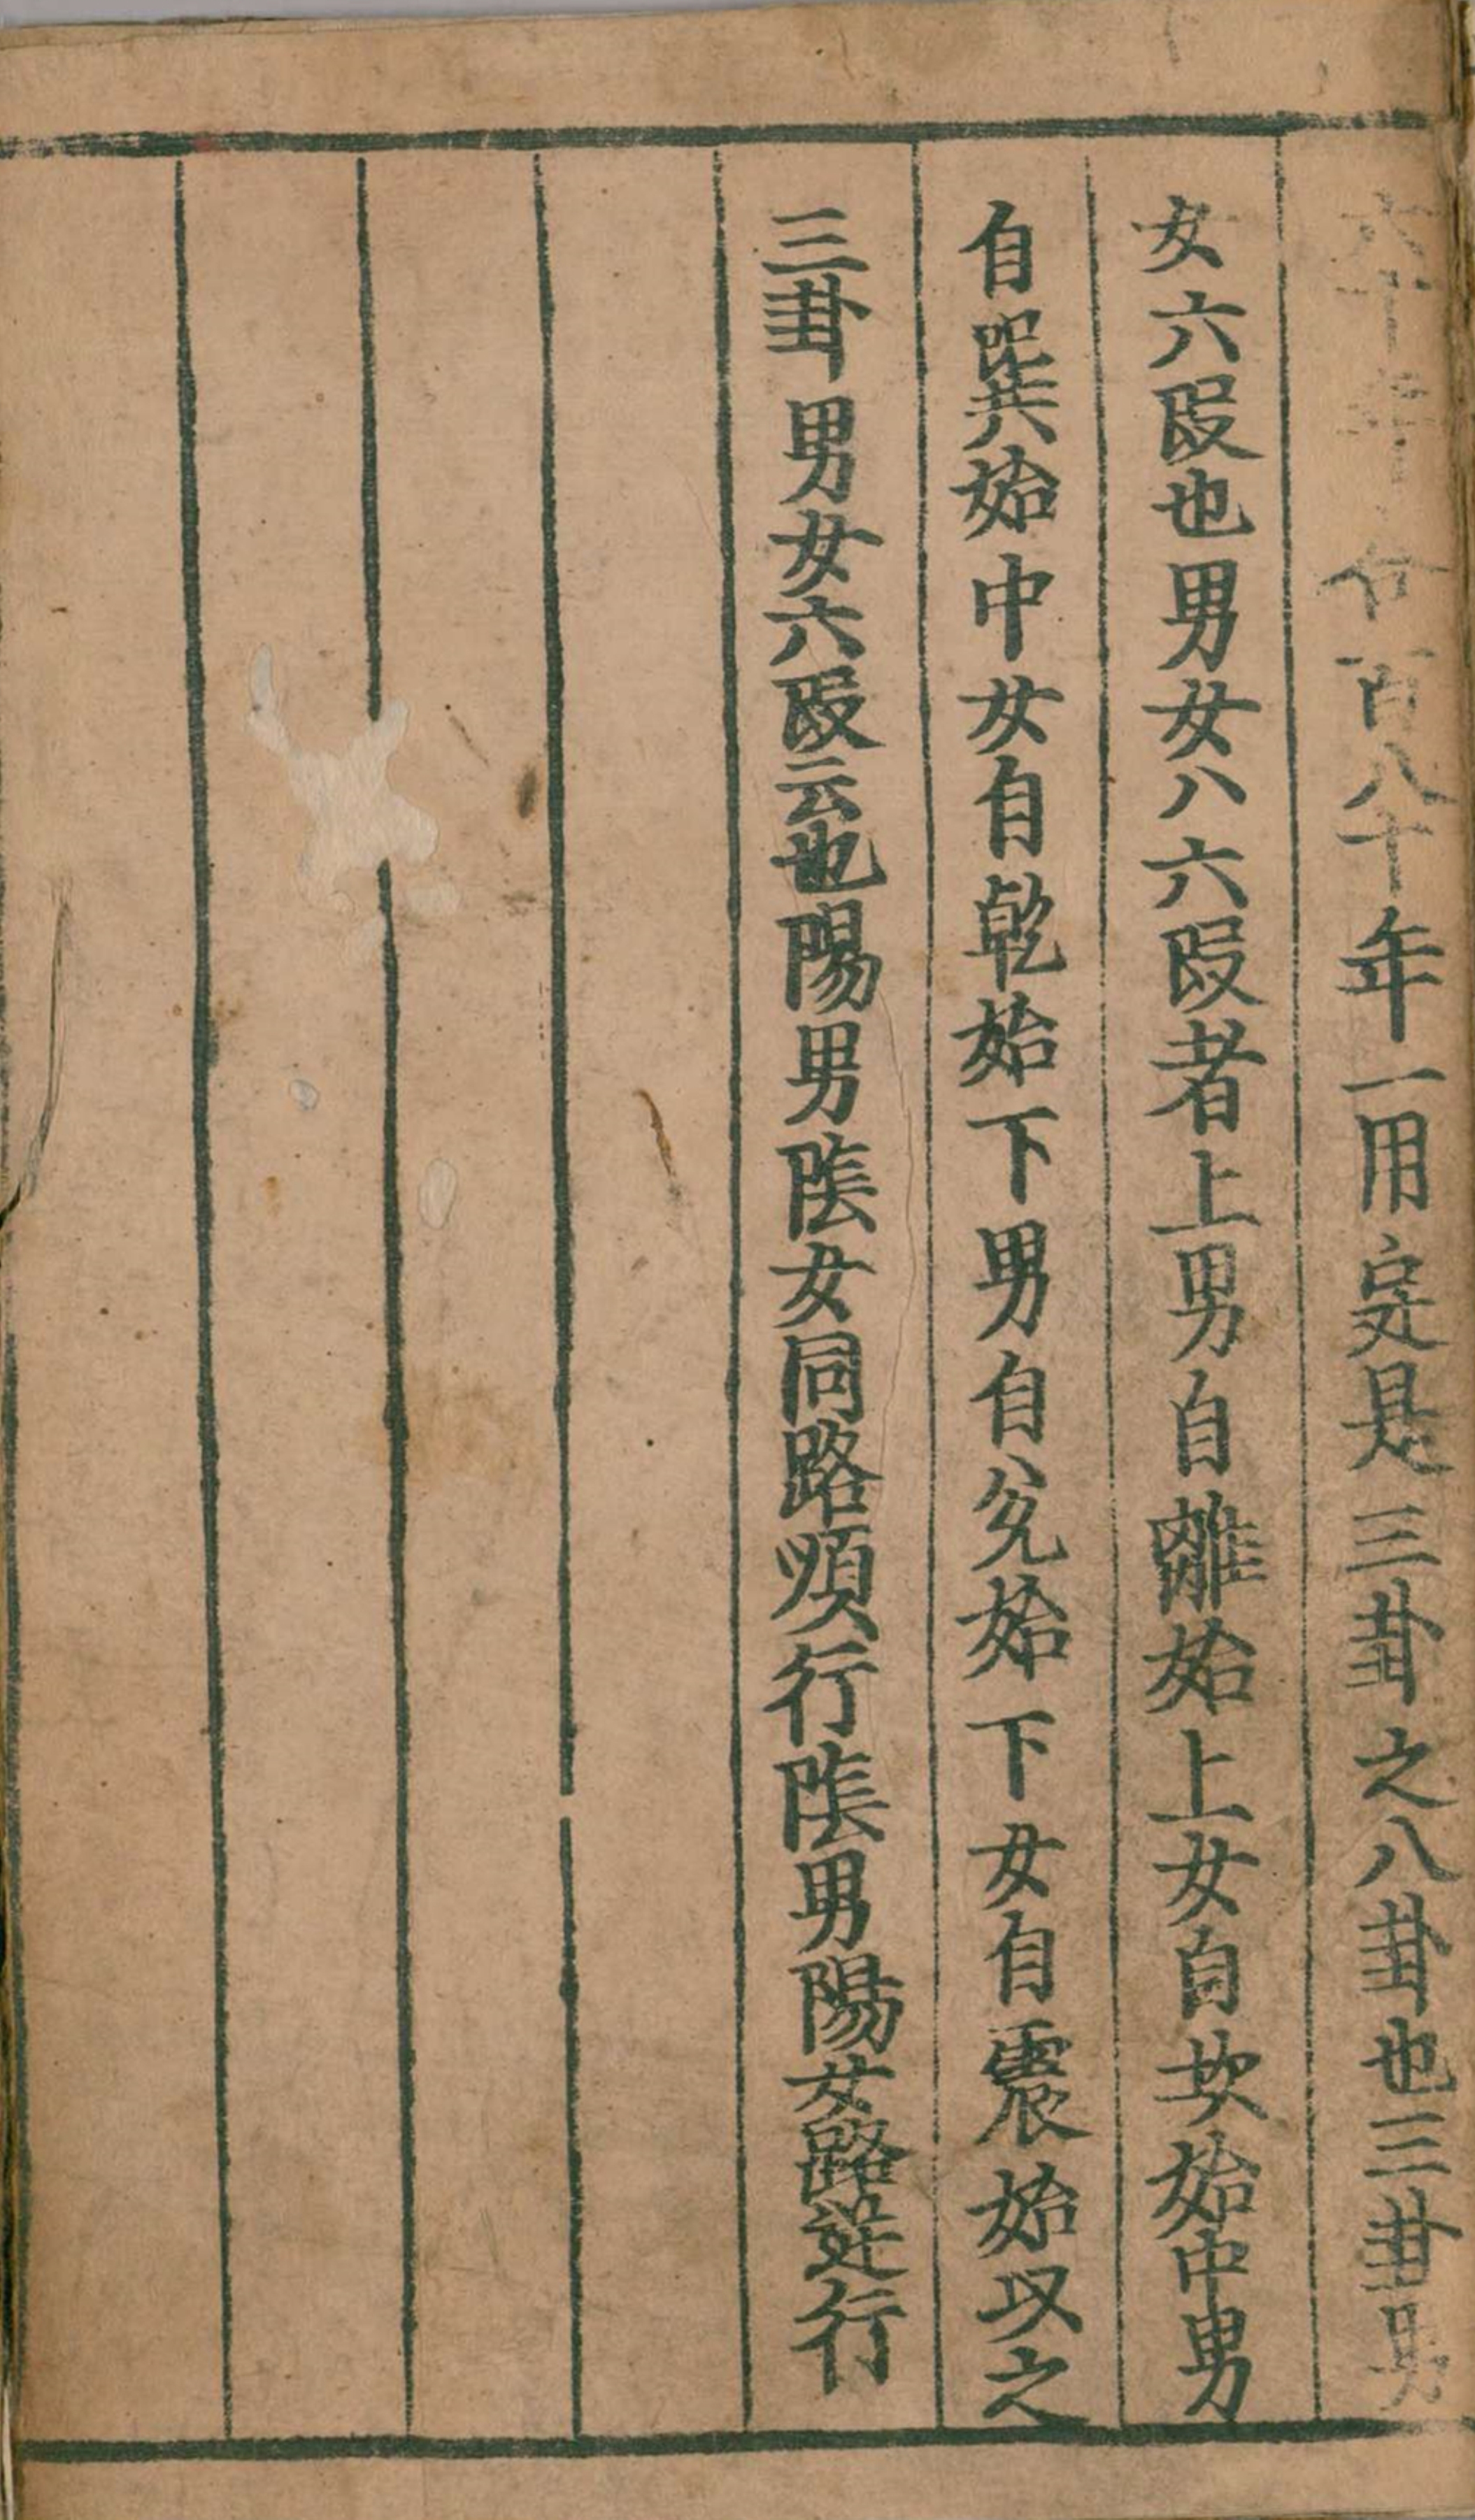 六十年 个百八十年一用定是三卦之八卦也三卦男
女六段也男女八六段者上男自離始上女自坎始中男
自巽始中女自乾始下男自兊始下女自震始以之
三卦男女六段云也陽男陰女同路順行陰男陽女路逆行